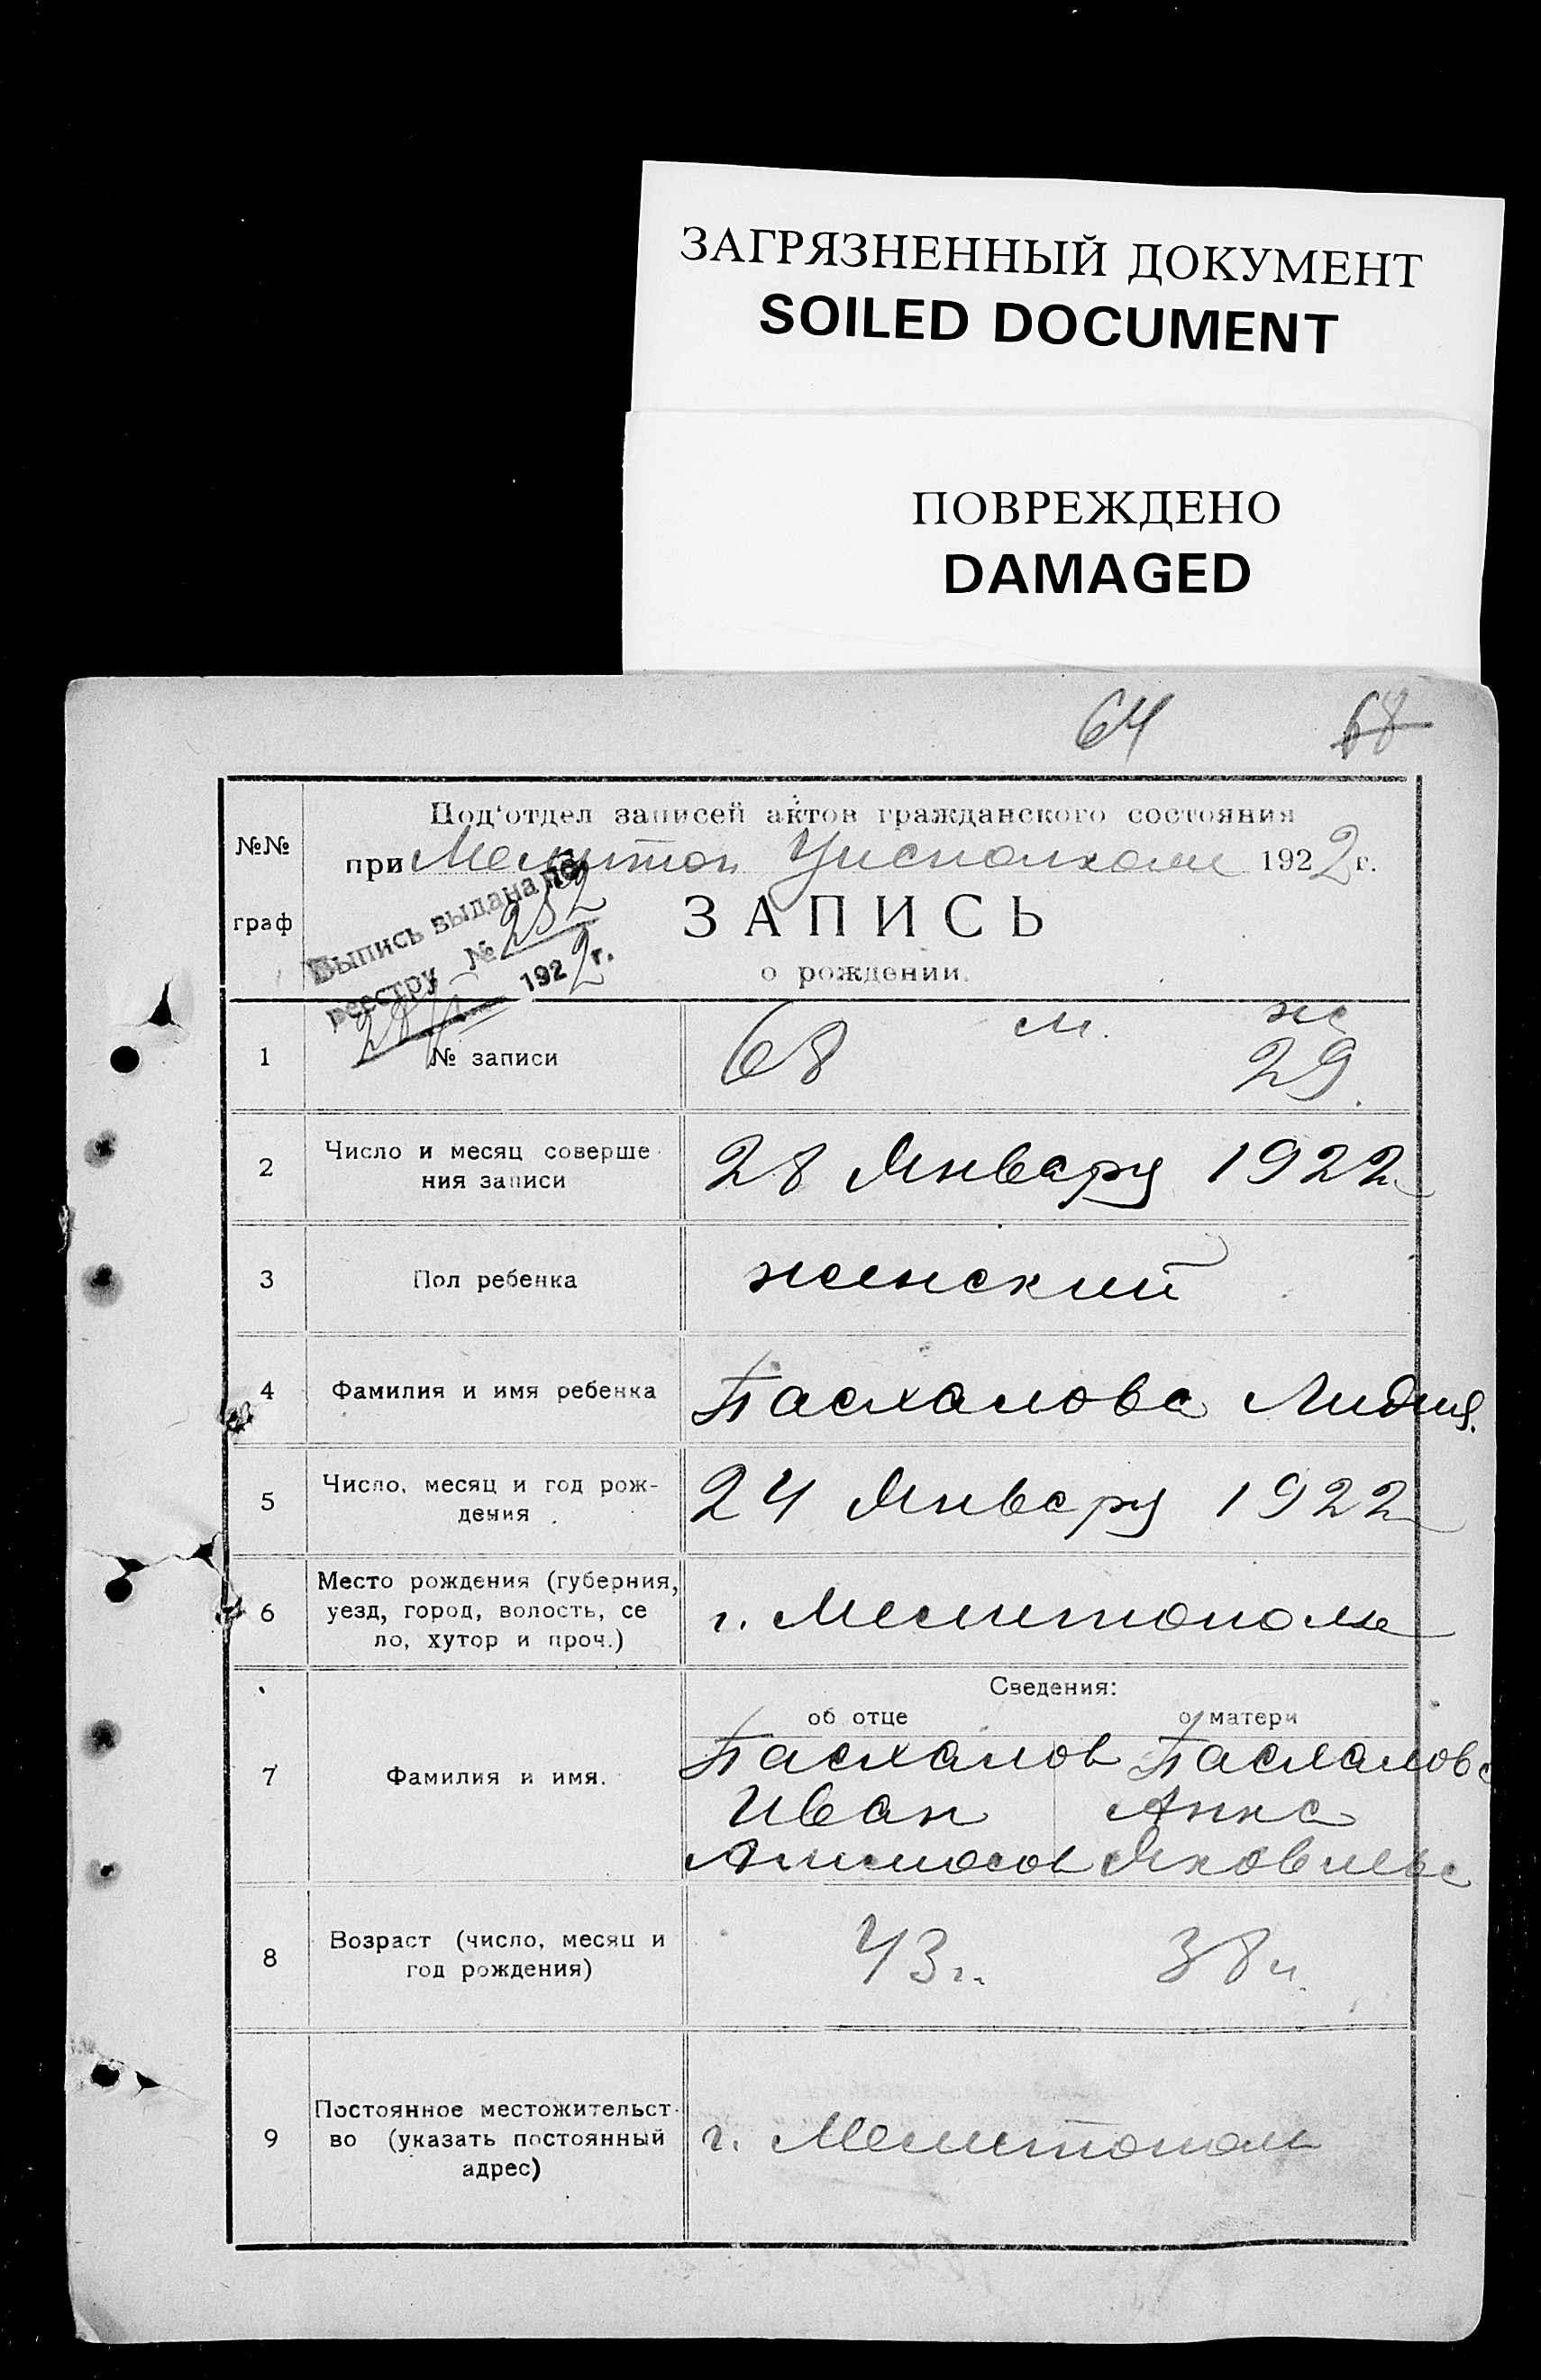 ЗАГРЯЗНЕННЫЙ ДОКУМЕНТ
SOILED DOCUMENT
ПОВРЕЖДЕНО
DAMAGED
64 68
№№ граф
Под'отдел записей актов гражданского состояния
при Мелитоп. Уисполкоме 1922 г.
Выпись выдана по
реестру № 252
28/I 1922 г.
ЗАПИСЬ
о рождении.
1 № записи 68 м. ж 29.
2 Число и месяц соверше
ния записи 28 Январу 1922
3 Пол ребенка женский
4 Фамилия и имя ребенка Пасхалова Лидия.
5 Число, месяц и год рож-
дения 24 Январу 1922
6 Место рождения (губерния,
уезд, город, волость, се
ло, хутор и проч.) г. Мелитополе
Сведения:
об отце о матери
7 Фамилия и имя. Пасхалов Пасхалова
Иван Анна
Яковлевна
8 Возраст (число, месяц и
год рождения) 43 г. 38 л.
9 Постоянное местожительст
во (указать постоянный
адрес) г. Мелитополь